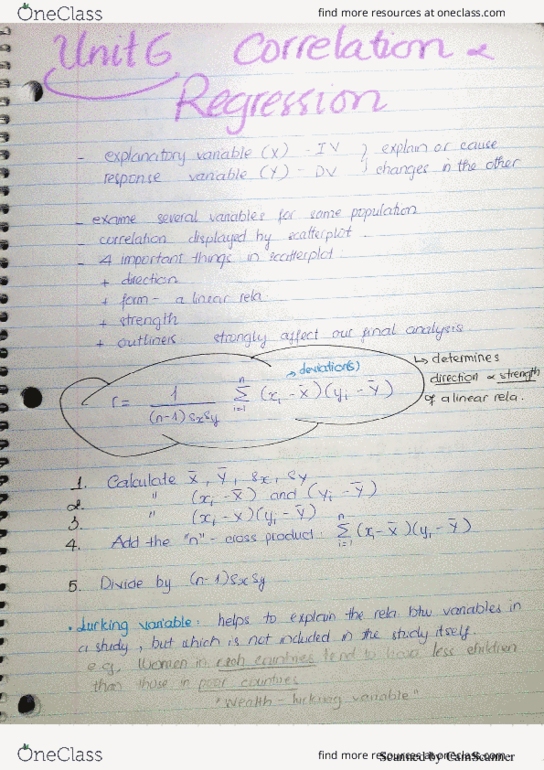 OneClass
find more resources at oneclass.com
Unit 6 Correlation &
Regression
- explanatory variable (X) - IV } explain or cause
response variable (Y) - DV } changes in the other
- exame several variables for same population
- correlation displayed by scatterplot.
- 4 important things in scatterplot:
+ direction
+ form - a linear rela.
+ strength
+ outliners strongly affect our final analysis
r = 1 / (n-1) sxsy n Σ i=1 (xi - x̄)(yi - ȳ)
→ deviation(s)
↳ determines
direction & strength
of a linear rela.
1. Calculate x̄, ȳ, sx, sy
2. " (xi - x̄) and (yi - ȳ)
3. " (xi - x)(yi - ȳ)
4. Add the "n" - cross product: n Σ i=1 (xi - x̄)(yi - ȳ)
5. Divide by (n-1) sxsy
• Lurking variable: helps to explain the rela btw variables in
a study, but which is not included in the study itself.
e.g. Women in rich countries tend to have less children
than those in poor countries
"wealth - lurking variable"
OneClass
find more resources at oneclass.com
Scanned by CamScanner